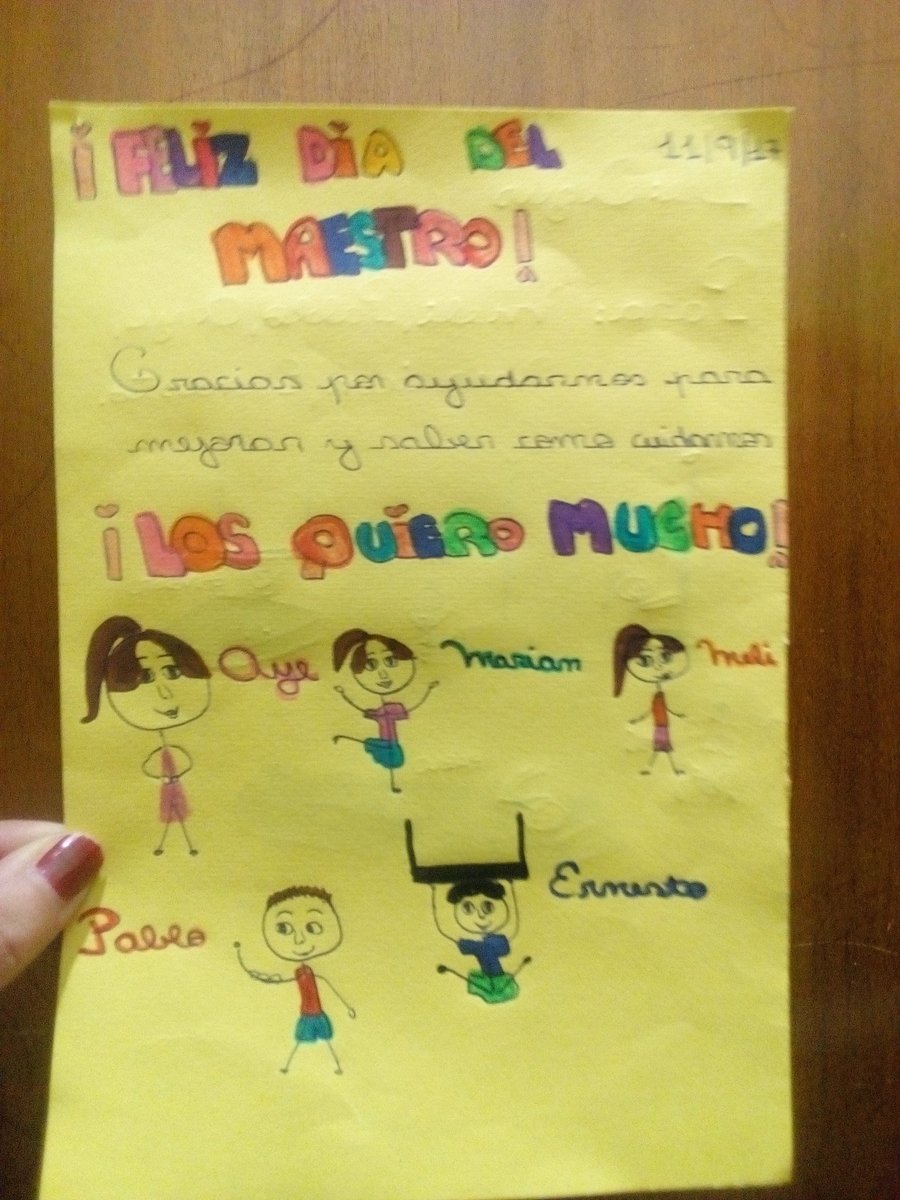 ¡FELIZ DIA DEL 11/9/17
MAESTRO!
Gracias por ayudarnos para
mejorar y saber como cuidarnos
¡LOS QUIERO MUCHO!
Aye Marian Meli
Ernesto
Pablo